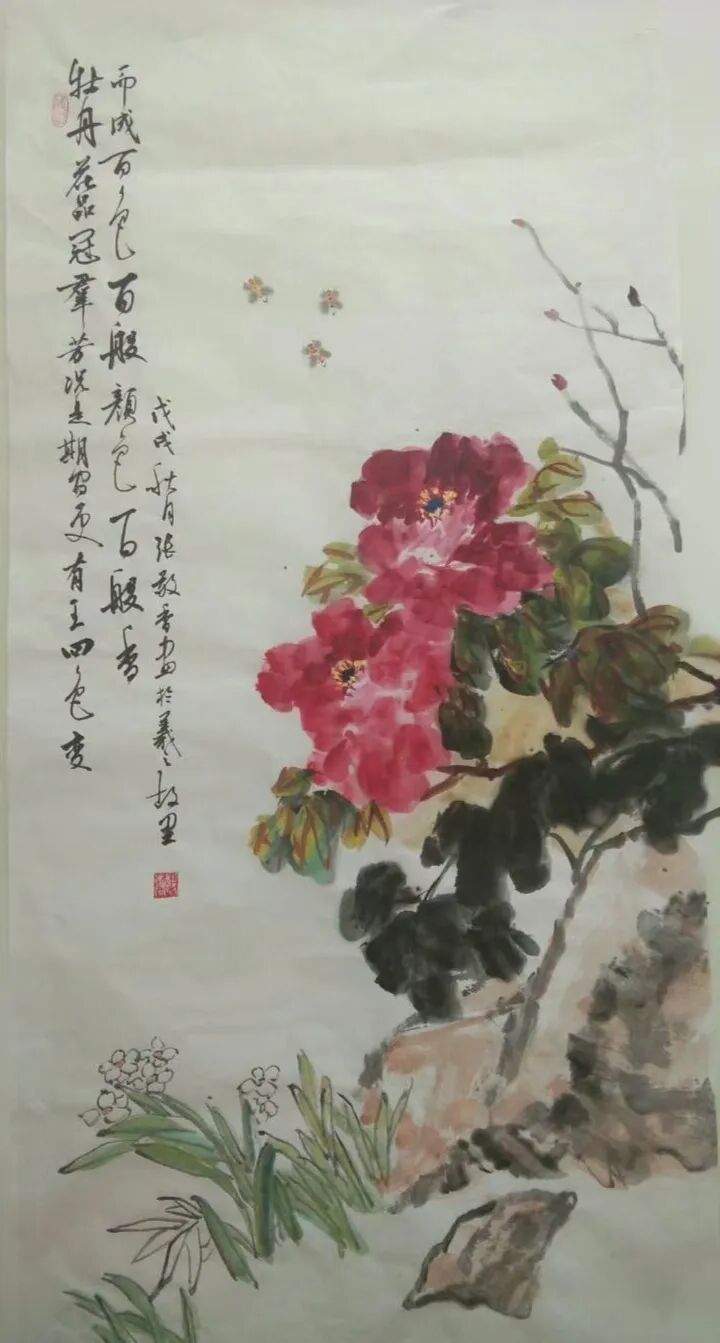 牡丹花品冠羣芳况是期间更有王四色变
而成百色百般颜色百般香
戊戌秋月张香画於羲之故里